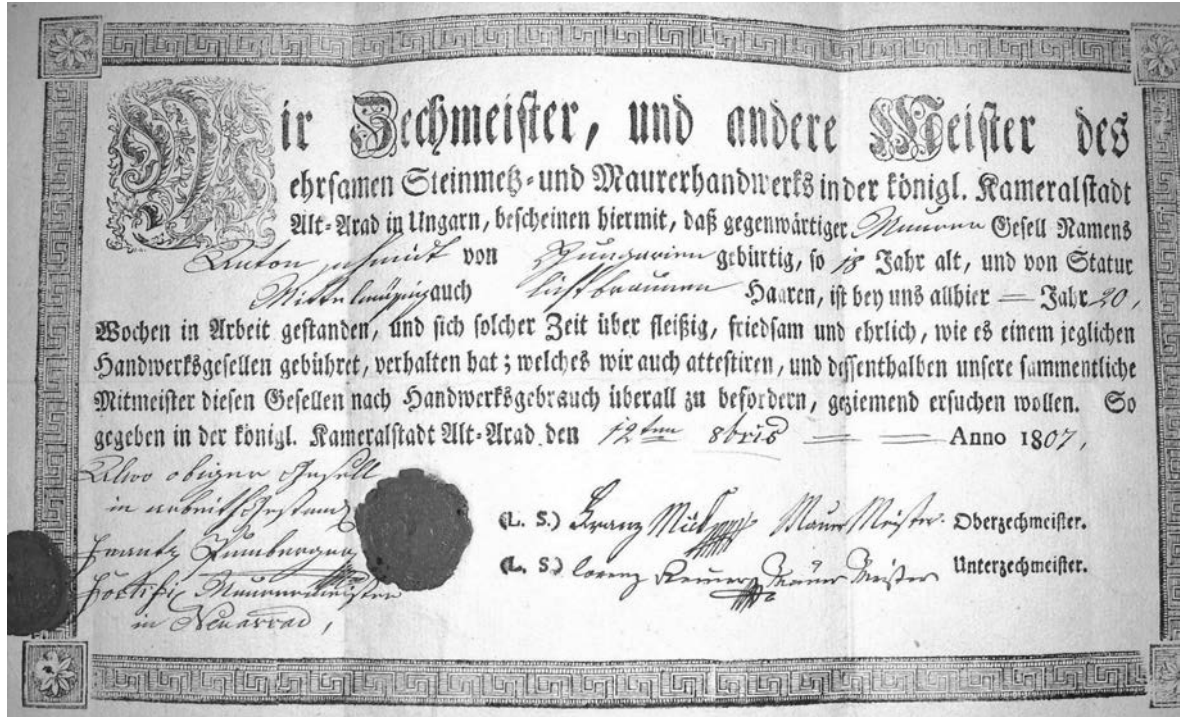 Wir Zechmeister, und andere Meister des
ehrsamen Steinmetz- und Maurerhandwerks in der königl. Kameralstadt
Alt-Arad in Ungarn, bescheinen hiermit, daß gegenwärtiger Maurer Gesell Namens
Anton Schmidt von Hungarien gebürtig, so 18 Jahr alt, und von Statur
Mittelmäßig auch lichtbraunen Haaren, ist bey uns allhier = Jahr 20,
Wochen in Arbeit gestanden, und sich solcher Zeit über fleißig, friedsam und ehrlich, wie es einem jeglichen
Handwerksgesellen gebühret, verhalten hat; welches wir auch attestiren, und dessenthalben unsere sammentliche
Mitmeister diesen Gesellen nach Handwerksgebrauch überall zu befordern, geziemend ersuchen wollen. So
gegeben in der königl. Kameralstadt Alt-Arad den 12ten 8bris = = Anno 1807,
Allwo obiger Gesell
in arbeit Gestand
Frantz Pumberger
Maurermeister
in Neuarrad,
(L. S.) Franz Maurer Meister. Oberzechmeister.
(L. S.) Lorenz Maurer Meister Unterzechmeister.